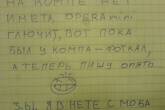 НА КОМПЕ НЕТ
ИНЕТА, OPERA mini
ГЛЮЧИТ, ВОТ ПОКА
БЫЛ У КОМПА-ФОТКАЛ,
А ТЕПЕРЬ ПИШУ ОПЯТЬ
З.Ы. Я В НЕТЕ С МОБА